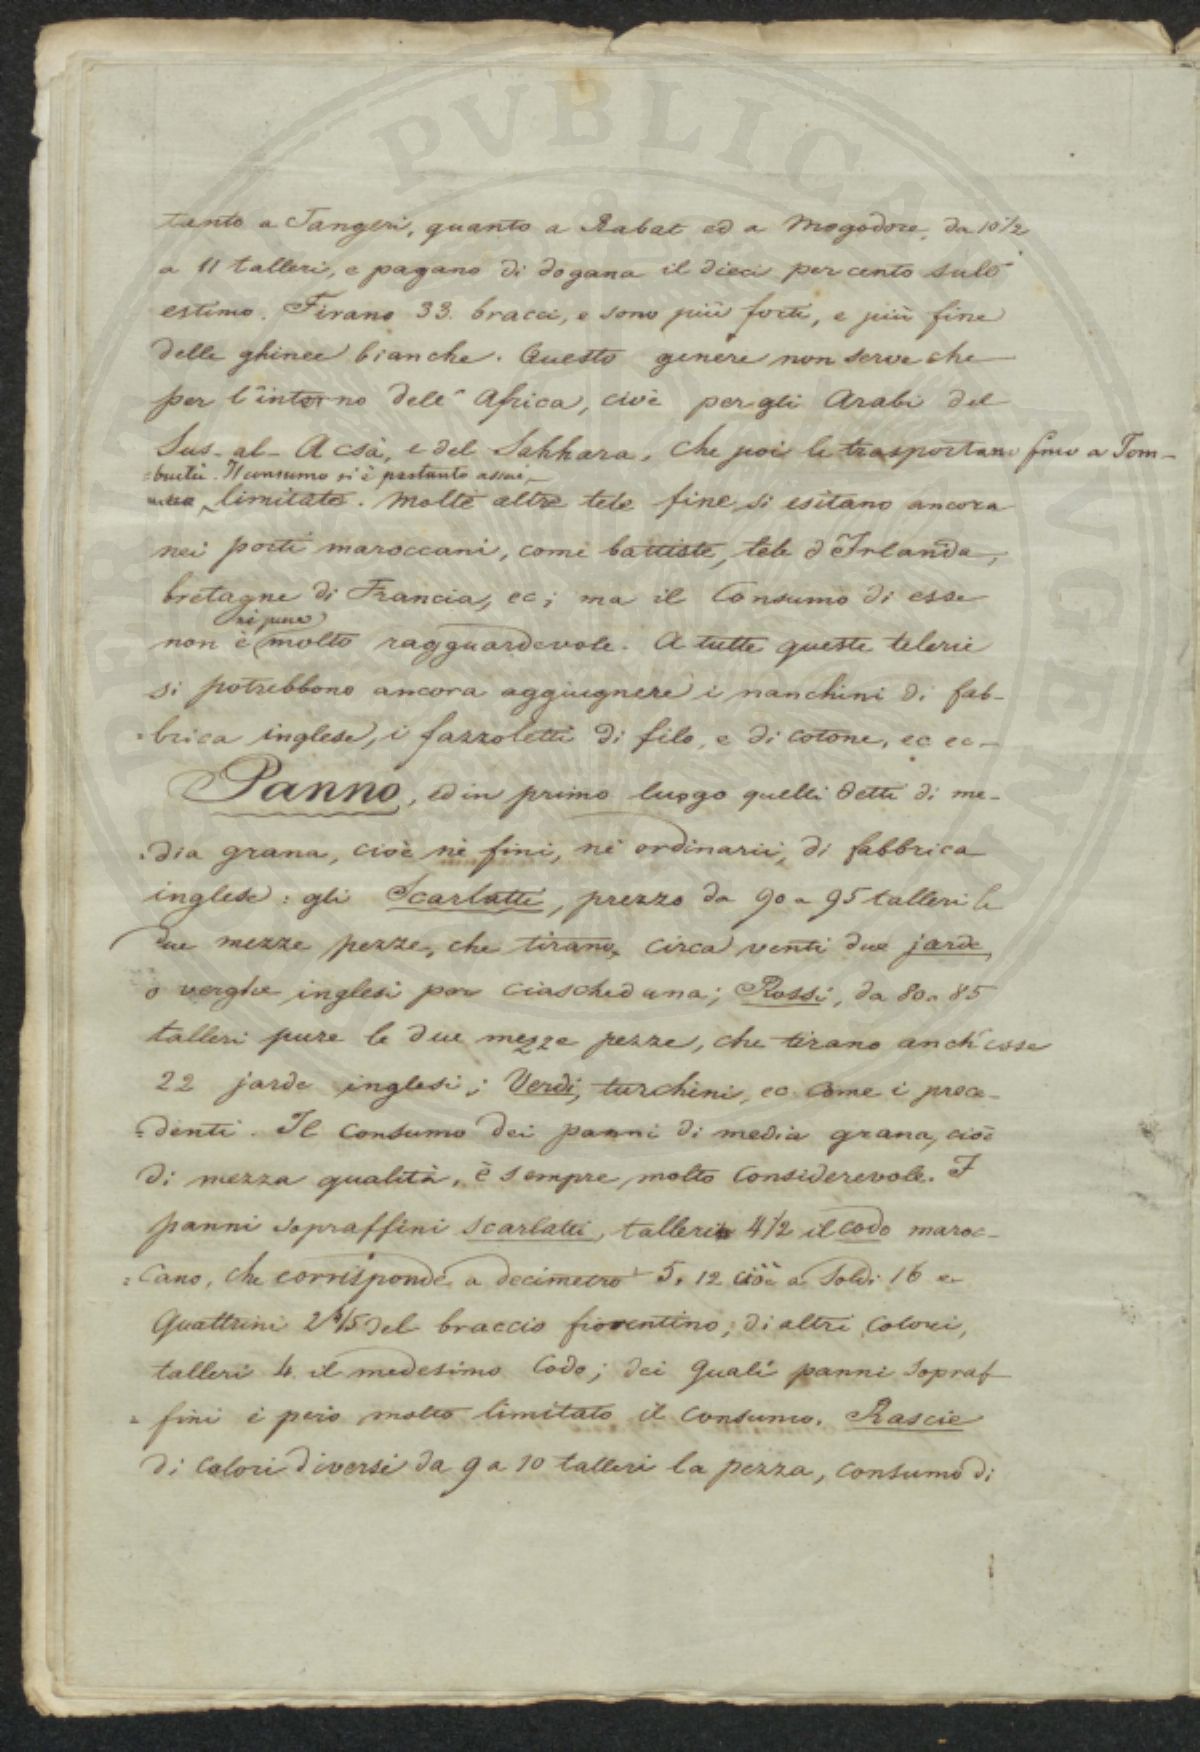 tanto a Tangeri, quanto a Rabat ed a Mogodore, da 10 1/2
a 11 talleri, e pagano di dogana il dieci per cento sull'
estimo. Tirano 33. bracci, e sono più forti, e più fine
delle ghinee bianche. Questo genere non serve che
per l'interno dell'Africa, cioè per gli Arabi del
Sus-al-Acsà, e del Sahhara, che poi le trasportano fino a Tom-
=buctù. Il consumo si è pertanto assai
limitato. Molte altre tele fine si esitano ancora
nei porti maroccani, come battiste, tele d'Irlanda,
bretagne di Francia, ec; ma il Consumo di esse
non è molto ragguardevole. A tutte queste telerie
si potrebbono ancora aggiugnere i nanchini di fab-
=brica inglese, i fazzoletti di filo, e di cotone, ec ec-
Panno, ed in primo luogo quelli detti di me-
=dia grana, cioè nè fini, nè ordinarii, di fabbrica
inglese: gli Scarlatti, prezzo da 90 a 95 talleri le
due mezze pezze, che tirano circa venti due jarde,
o verghe inglesi per ciascheduna; Rossi, da 80 a 85
talleri pure le due mezze pezze, che tirano anch'esse
22 jarde inglesi; Verdi, turchini, ec come i prece-
=denti. Il consumo dei panni di media grana, cioè
di mezza qualità, è sempre molto Considerevole. I
panni sopraffini scarlatti, talleri 4 1/2 il codo maroc-
=cano, che corrisponde a decimetro 5, 12 cioè a Soldi 16 e
Quattrini 2 1/5 del braccio fiorentino; di altri Colori,
talleri 4 il medesimo Codo; dei quali panni sopraf-
=fini è però molto limitato il consumo. Rascie
di Colori diversi da 9 a 10 talleri la pezza, consumo di